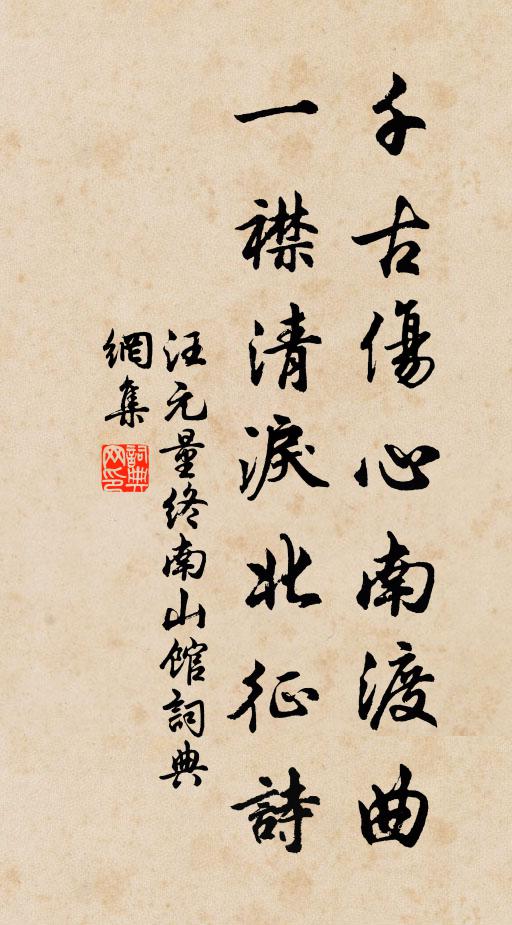 千古傷心南渡曲
一襟清淚北征詩
汪元量終南山館詞典
網集
詞典網印